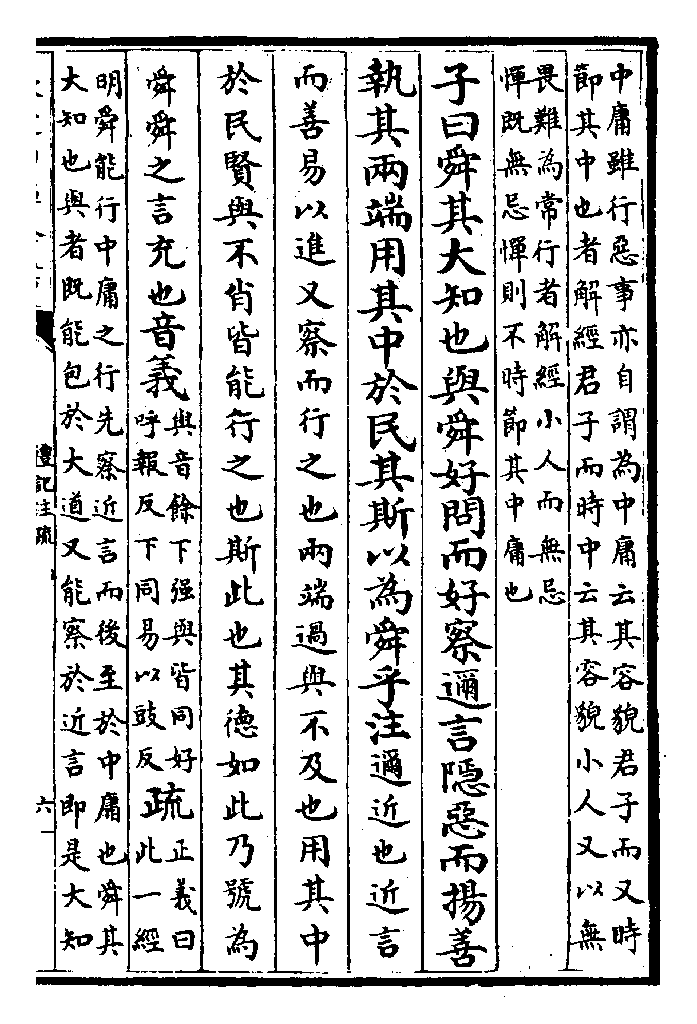 中庸雖行惡事亦自謂為中庸云其容貌君子而又時
節其中也者解經君子而時中云其容貌小人又以無
畏難為常行者解經小人而無忌
憚既無忌憚則不時節其中庸也
子曰舜其大知也與舜好問而好察邇言隱惡而揚善
執其兩端用其中於民其斯以為舜乎注邇近也近言
而善易以進又察而行之也兩端過與不及也用其中
於民賢與不肖皆能行之也斯此也其德如此乃號為
舜舜之言充也音義
與音餘下强與皆同好
呼報反下同易以豉反
疏
正義曰
此一經
明舜能行中庸之行先察近言而後至於中庸也舜其
大知也與者既能包於大道又能察於近言即是大知
禮記注疏
六